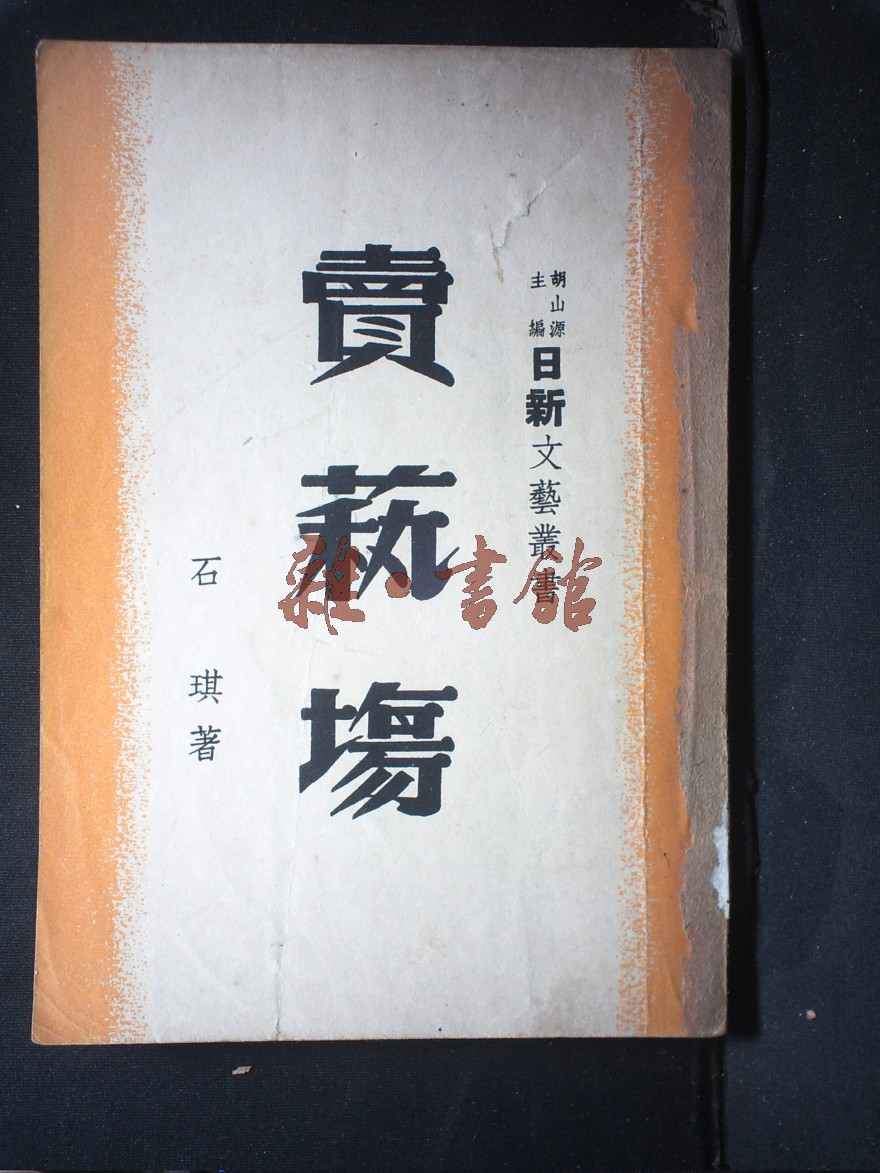 胡山源
主編
日新文藝叢書
賣藝場
石琪著
雜·書館